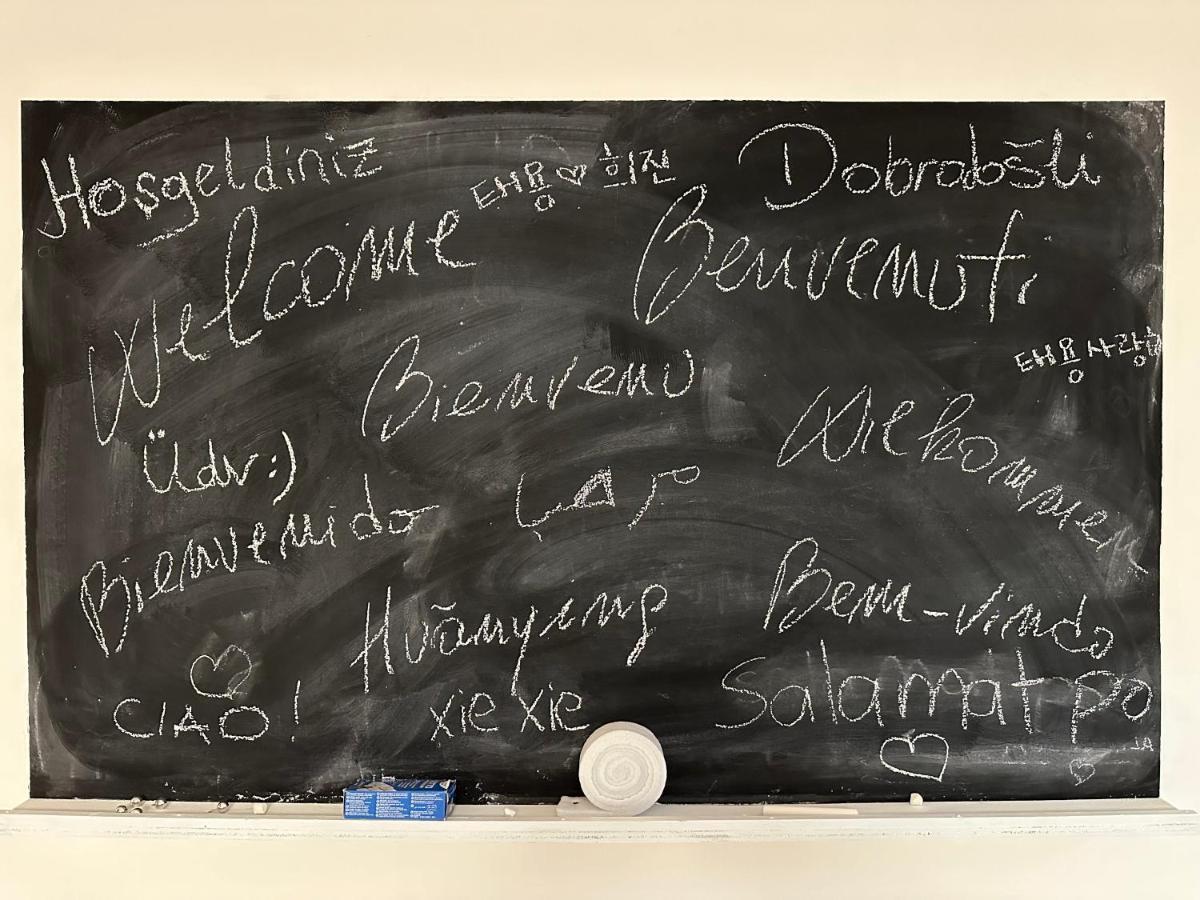 Hoşgeldiniz
태용♡희진
Dobrabošli
Welcome
Benvenuti
태용사랑해
Bienvenu
Wiekommen
Üdv:)
Bienvenido
مرحبا
Huānyíng
Bem-vindo
CIAO!
xie xie
Salamat po